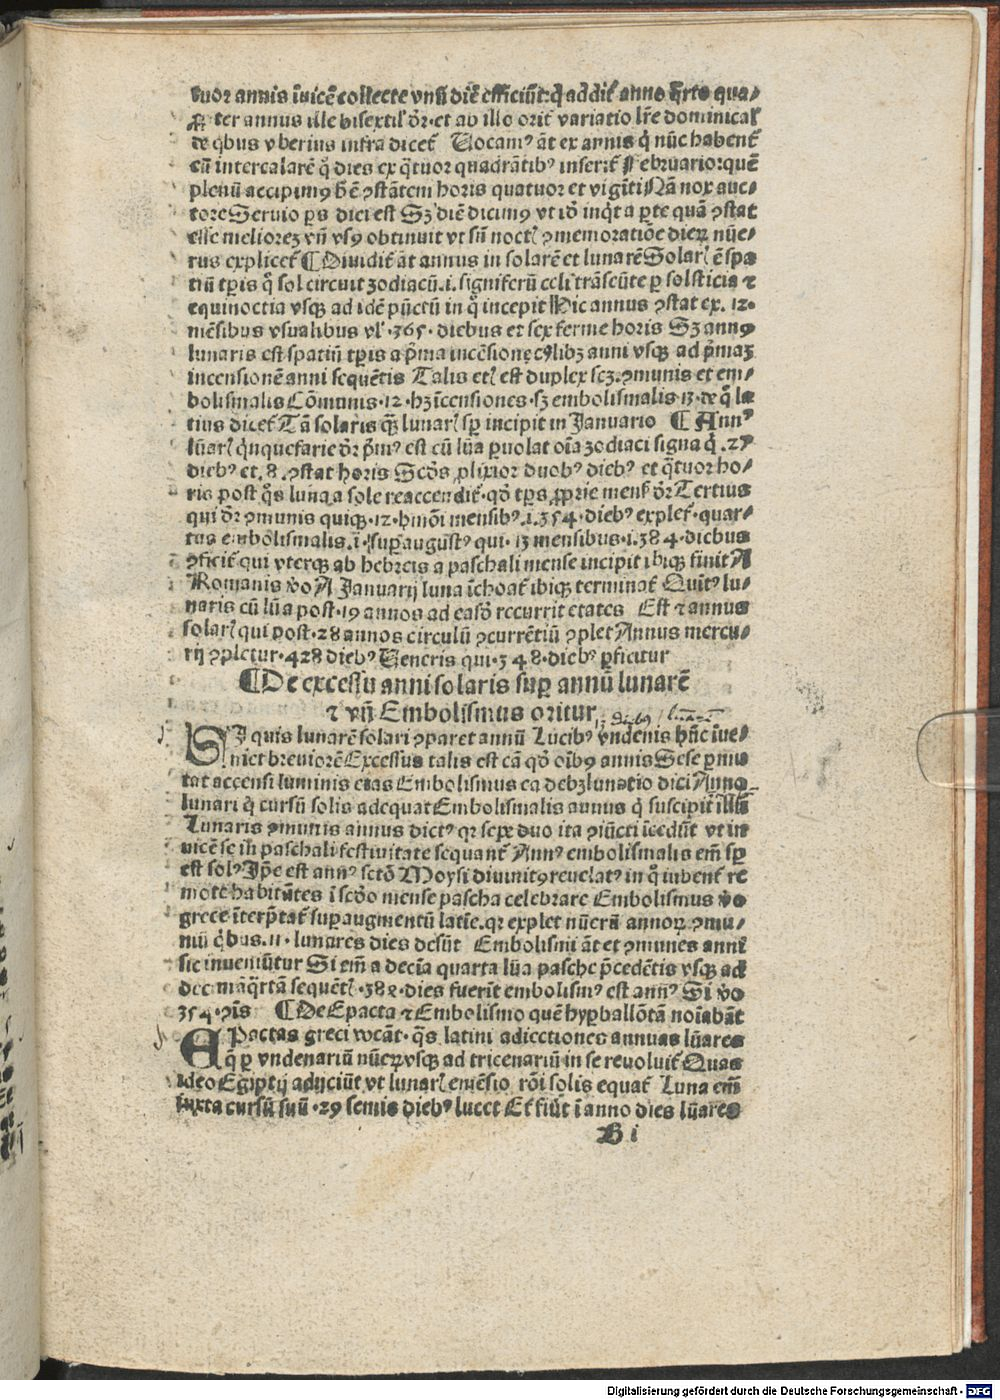 tuor annis īuicē collecte vnū diē efficiūt: q̄ addit᷑ anno q̄rto qua⸗
ꝓpter annus ille bisextil᷑ d᷑r. et ab illo orit᷑ variatio lr̄e dominical᷑
de q̄bus vberius infra dicet᷑ Vocamꝰ āt ex annis q̄ nūc habent᷑
cū intercalarē q̄ dies ex q̄tuor quadrātibꝰ inserit᷑ Februario: quē
plenū accipimꝰ h̄ ē ꝯstātem horis quatuor et vigīti Nā nox auc⸗
tore Seruio ps diei est Sꝫ diē dicimꝰ vt idē inq̄t a p̄te quā ꝯstat
esse meliorez vn̄ vsꝰ obtinuit vt sn̄ noct᷑ ꝯmemoratiōe dieꝝ nūe⸗
rus explicet᷑ ¶ Diuidit᷑ āt annus in solarē et lunarē Solar᷑ ē spa
tiū tp̄is q̄ sol circuit zodiacū .i. signiferū celi trāseūte p solsticia ⁊
equinoctia vsqꝫ ad idē pūctū in q̄ incepit Hic annus ꝯstat ex .12.
mēsibus vsualibus vl᷑ .365. diebus et sex ferme horis Sꝫ annꝰ
lunaris est spatiū tp̄is a p̄ma incēsione cꝰlibꝫ anni vsqꝫ ad p̄maꝫ
incensionē anni sequētis Talis et᷑ est duplex scꝫ. ꝯmunis et em⸗
bolismalis Cōmunis .12. hꝫ īcensiones. sꝫ embolismalis .13. de q̄ la
tius dicet᷑ Tā solaris q̄ꝫ lunar᷑ sp̄ incipit in Januario ¶ Annꝰ
lūar᷑ q̄nquefarie d᷑r p̄mꝰ est cū lūa puolat oīa zodiaci signa q̄ .27
diebꝰ et .8. ꝯstat horis Scd̄s ꝓlixior duobꝰ diebꝰ et q̄tuor ho⸗
ris post q̄s luna a sole reaccendit᷑. qd̄ tp̄s ꝓprie mens᷑ d᷑r Tertius
qui d᷑r ꝯmunis quiqꝫ .12. hmōi mensibꝰ .i. 354. diebꝰ explet᷑. quar⸗
tus embolismalis .i. supaugustꝰ qui .13 mensibus .i. 384. diebus
ꝯficit᷑ qui vterqꝫ ab hebreis a paschali mense incipit ibiqꝫ finit A
Romanis vō A Januarij luna īchoat᷑ ibiqꝫ terminat᷑ Quītꝰ lu⸗
naris cū lūa post .19 annos ad easd̄ recurrit etates Est ⁊ annus
solar᷑ qui post .28 annos circulū ꝯcurrētiū ꝯplet Annus mercu⸗
rij ꝯpletur .428 diebꝰ Veneris qui .348. diebꝰ ꝑficitur
¶ De excessu anni solaris suꝑ annū lunarē
⁊ vn̄ Embolismus oritur
SI quis lunarē solari ꝯparet annū Lucibꝰ vndenis hūc īue⸗
niet breuiorē Excessus talis est cā qd̄ oībꝰ annis Sese ꝑmu
tat accensi luminis etas Embolismus ea debꝫ lunatio dici Anno
lunari q̄ cursū solis adequat Embolismalis annus q̄ suscipit illū
Lunaris ꝯmunis annus dictꝰ qr sepe duo ita ꝯiūcti īcedūt vt in
uicē se in paschali festiuitate sequant᷑ Annꝰ embolismalis em̄ sp̄
est solꝰ Ip̄e est annꝰ sctō Moysi diuinitꝰ reuelatꝰ in q̄ iubent᷑ re
mote habitātes ī scd̄o mense pascha celebrare Embolismus vō
grece īterp̄tat᷑ supaugmentū latīe. qr explet nūerū annoꝝ ꝯmu⸗
niū q̄bus .11. lunares dies desūt Embolismi āt et ꝯmunes anni
sic inueniūtur Si em̄ a decīa quarta lūa pasche p̄cedētis vsqꝫ ad
decimāq̄rta sequēt᷑ .384. dies fuerit embolismꝰ est annꝰ Si vō
354. ꝯis ¶ De Epacta ⁊ Embolismo quē hyꝑballōtā noīabāt
EPactas greci vocāt. q̄s latini adiectiones annuas lūares
q̄ p vndenariū nūeꝝ vsqꝫ ad tricenariū in se reuoluit᷑ Quas
ideo Egiptij adijciūt vt lunar᷑ emēsio rōi solis equat᷑ Luna em̄
iuxta cursū suū .29 semis diebꝰ lucet Et᷑ fiūt ī anno dies lūares
B i
Digitalisierung gefördert durch die Deutsche Forschungsgemeinschaft - DFG